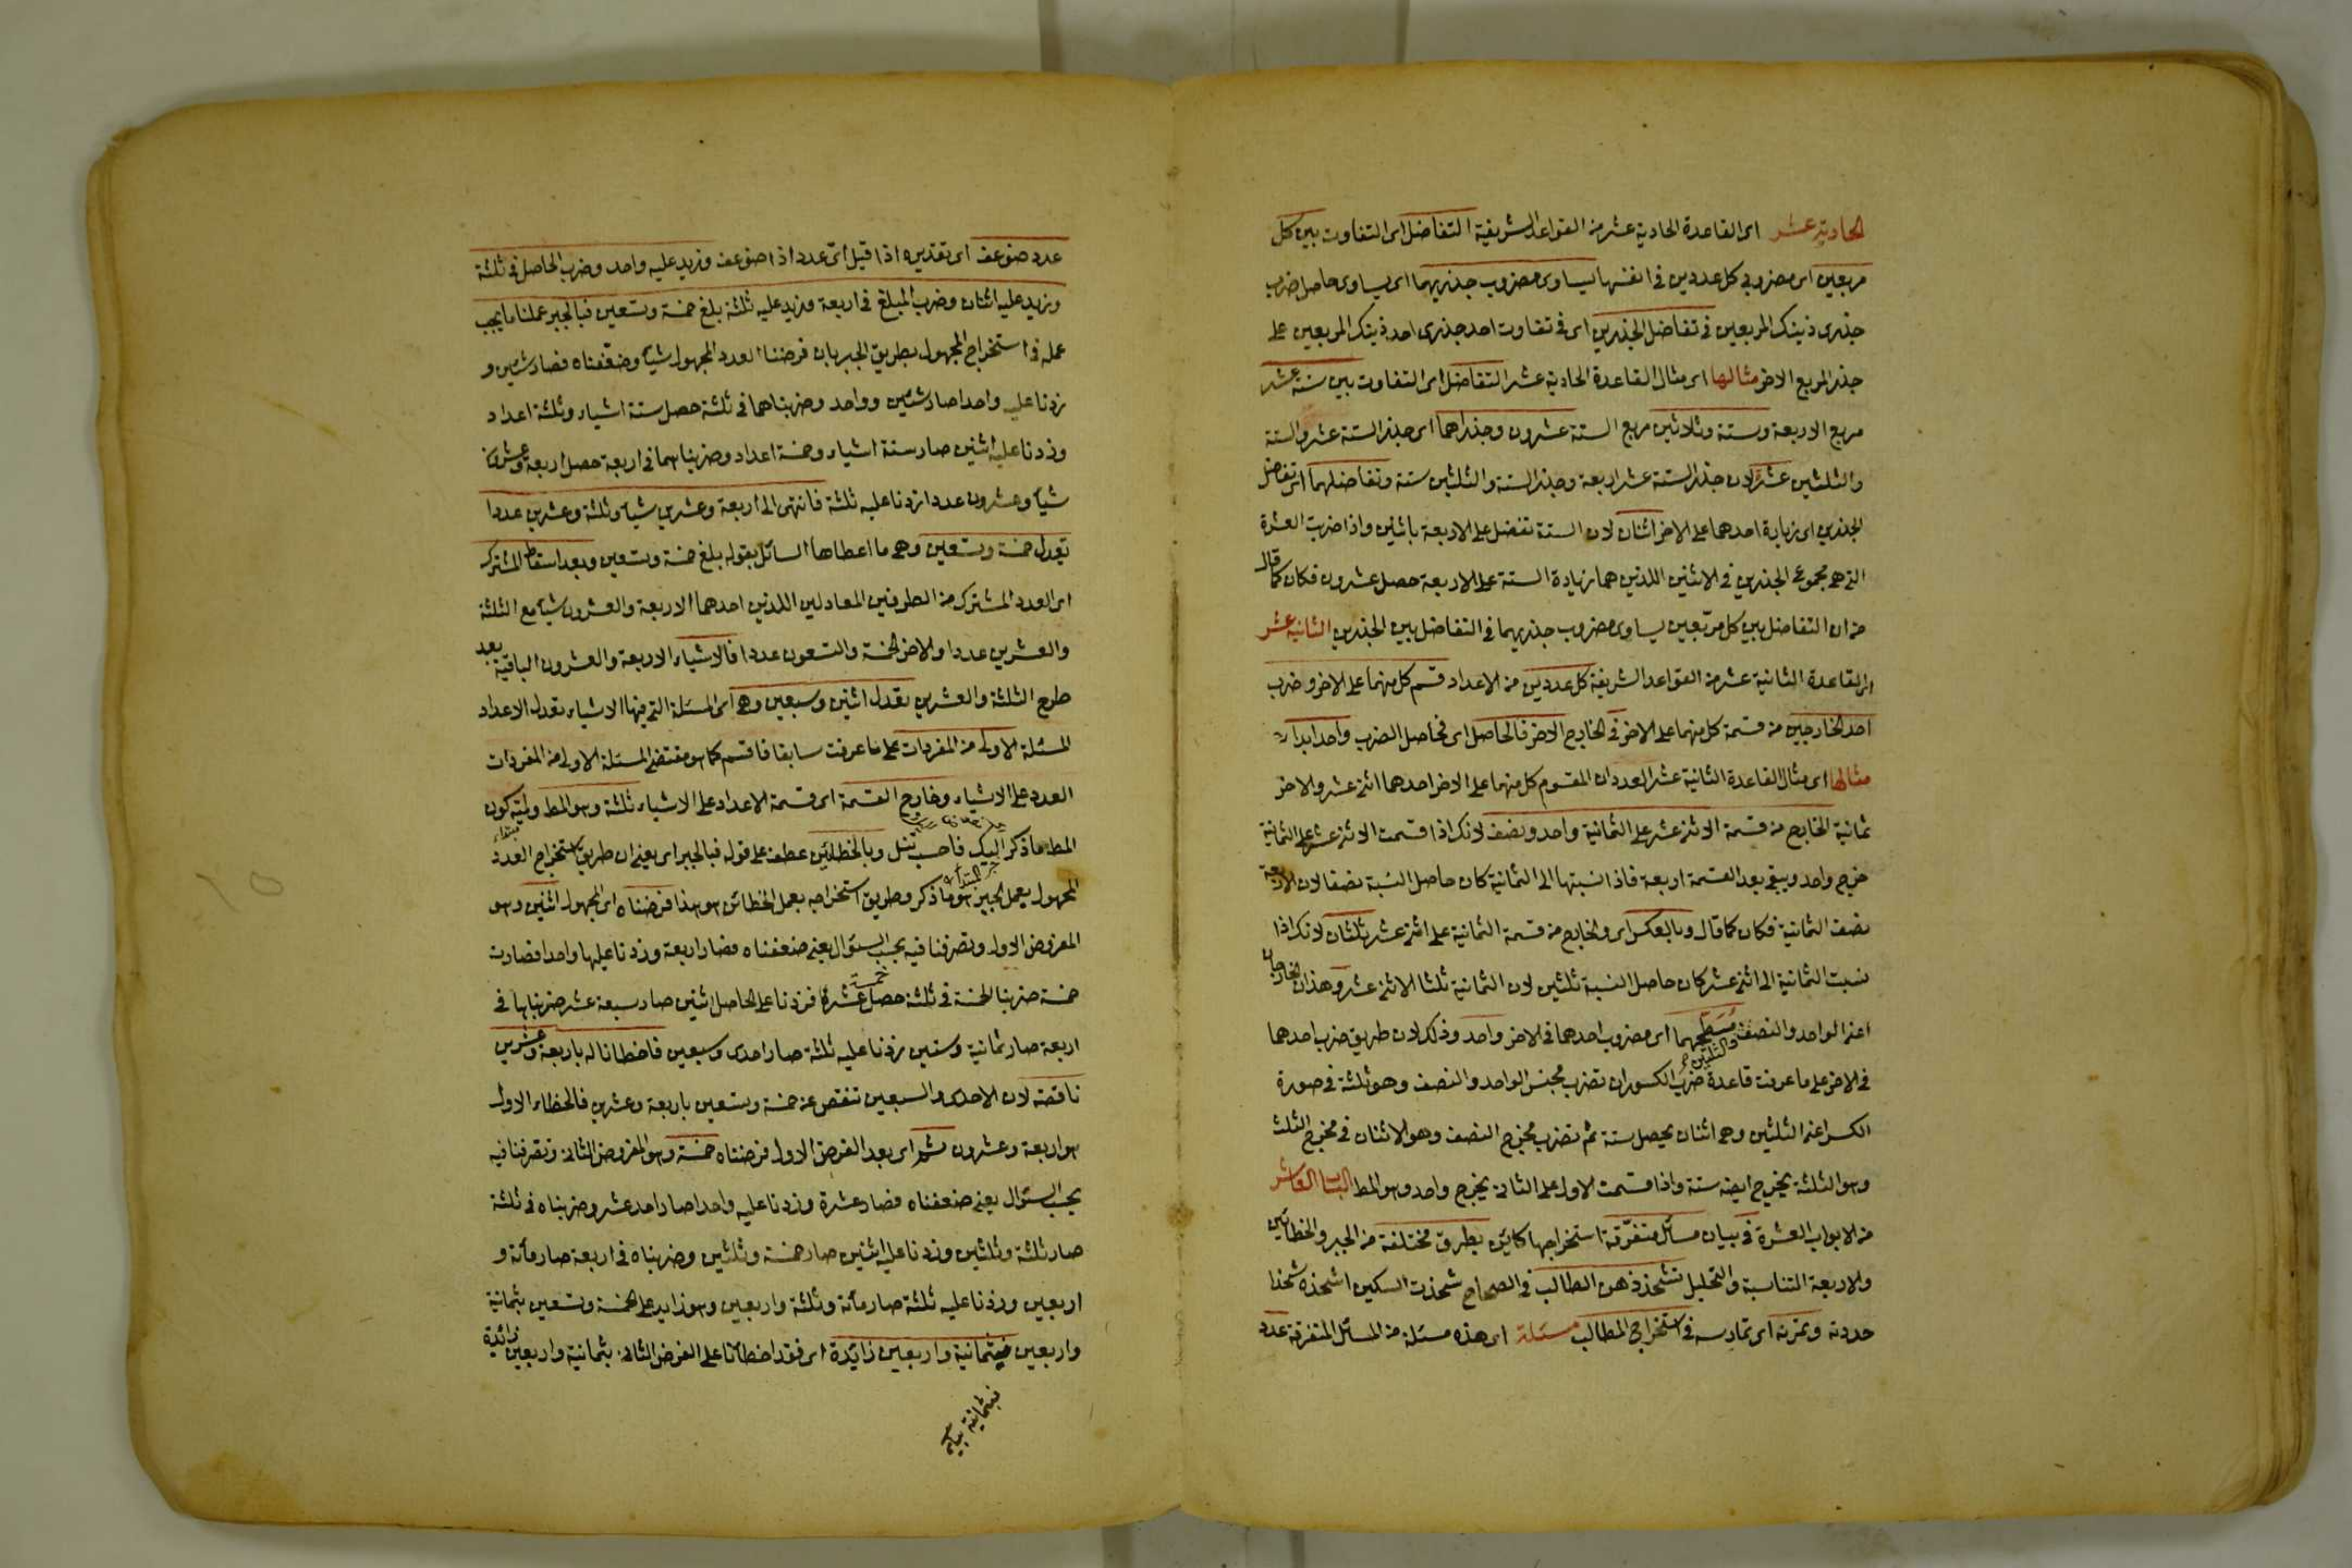 الحادية عشر اى القاعدة الحادية عشر من القواعد الشريفة التفاضل اى التفاوت بين كل
مربعين اى مضروبى كل عددين فى انفسهما يساوى مضروب جذريهما اى يساوى حاصل ضرب
جذرى ذينك المربعين فى تفاضل الجذرين اى فى تفاوت احد جذرى احد ذينك المربعين على
جذر المربع الاخر مثالها اى مثال القاعدة الحادية عشر التفاضل اى التفاوت بين ستة عشر
مربع الاربعة وستة وثلاثين مربع الستة عشرون وجذراهما اى جذر الستة عشر والستة
والثلثين عشرة لان جذر الستة عشر اربعة وجذر الستة والثلثين ستة وتفاضلهما اى تفاضل
الجذرين اى زيادة احدهما على الاخر اثنان لان الستة تفضل على الاربعة باثنين واذا ضربت العشرة
التى هى مجموع الجذرين فى الاثنين اللذين هما زيادة الستة على الاربعة حصل عشرون فكان كما قال
من ان التفاضل بين كل مربعين يساوى مضروب جذريهما فى التفاضل بين الجذرين الثانية عشر
اى القاعدة الثانية عشر من القواعد الشريفة كل عددين من الاعداد قسم كل منهما على الاخر وضرب
احد الخارجين من قسمة كل منهما على الاخر فى الخارج الاخر فالحاصل اى فحاصل الضرب واحد ابدا
مثالها اى مثال القاعدة الثانية عشر العددان المقسوم كل منهما على الاخر احدهما اثنى عشر والاخر
ثمانية الخارج من قسمة الاثنى عشر على الثمانية واحد ونصف لانك اذا قسمت الاثنى عشر على الثمانية
خرج واحد ويبقى بعد القسمة اربعة فاذا نسبتها الى الثمانية كان حاصل النسبة نصفا لان الاربعة
نصف الثمانية فكان كما قال وبالعكس اى والخارج من قسمة الثمانية على اثنى عشر ثلثان لانك اذا
نسبت الثمانية الى اثنى عشر كان حاصل النسبة ثلثين لان الثمانية ثلثا الاثنى عشر وهذان الخارجان
اعنى الواحد والنصف والثلثين مسطحهما اى مضروب احدهما فى الاخر واحد وذلك لان طريق ضرب احدهما
فى الاخر على ما عرفت قاعدة ضرب الكسور ان تضرب مجنس الواحد والنصف وهو ثلثة فى صورة
الكسر اعنى الثلثين وهى اثنان يحصل ستة ثم تضرب مخرج النصف وهو الاثنان فى مخرج الثلث
وهو الثلثة يخرج ايضه ستة واذا قسمت الاول على الثانى يخرج واحد وهو المط الباب العاشر
من الابواب العشرة فى بيان مسائل متفرقة استخراجها كائن بطرق مختلفة من الجبر والخطائين
والاربعة المتناسبة والتحليل تشحذ ذهن الطالب فى الصحاح شحذت السكين اشحذه شحذا
حددته وتمرنه اى تمارسه فى استخراج المطالب مسئلة اى هذه مسئلة من المسائل المتفرقة عدد
عدد ضوعف اى تقديره اذا قيل اى عدد اذا ضوعف وزيد عليه واحد وضرب الحاصل فى ثلثة
وزيد عليه اثنان وضرب المبلغ فى اربعة وزيد عليه ثلثة بلغ خمسة وتسعين فبالجبر عملنا ما يجب
عمله فى استخراج المجهول بطريق الجبر بان فرضنا العدد المجهول شيأ وضعفناه فصار شيئين و
زدنا عليه واحدا صار شيئين وواحد وضربناهما فى ثلثة حصل ستة اشياء وثلثة اعداد
وزدنا عليه اثنين صار ستة اشياء وخمسة اعداد وضربناهما فى اربعة حصل اربعة وعشرون
شيأ وعشرون عددا زدنا عليه ثلثة فانتهى الى اربعة وعشرين شيأ وثلثة وعشرين عددا
يعدل خمسة وتسعين وهى ما اعطاها السائل بقوله بلغ خمسة وتسعين وبعد اسقاط المشترك
اى العدد المشترك من الطرفين المعادلين اللذين احدهما الاربعة والعشرون شيأ مع الثلثة
والعشرين عددا والاخر الخمسة والتسعون عددا فالاشياء الاربعة والعشرون الباقية بعد
طرح الثلثة والعشرين يعدل اثنين وسبعين وهى اى المسئلة التى فيها الاشياء تعدل الاعداد
المسئلة الاولى من المفردات على ما عرفت سابقا فاقسم كما هو مقتضى المسئلة الاولى من المفردات
العدد على الاشياء وخارج القسمة اى قسمة الاعداد على الاشياء ثلثة وهو المط ولمية كون
المط ما ذكر اليك فاحسب تنل وبالخطائين عطف على قوله فبالجبر اى يعنى ان طريق استخراج العدد
المجهول بعمل الجبر هو ما ذكر وطريق استخراجه بعمل الخطائين هو هذا فرضناه اى المجهول اثنين وهو
المفروض الاول وتصرفنا فيه بحسب السؤال يعنى ضعفناه فصار اربعة وزدنا عليها واحدا فصارت
خمسة ضربنا الخمسة فى ثلثة حصل خمسة عشر فزدنا على الحاصل اثنين صار سبعة عشر ضربناها فى
اربعة صار ثمانية وستين زدنا عليه ثلثة صار احدى وسبعين فاخطانا له باربعة وعشرين
ناقصة لان الاحدى والسبعين تنقص عن خمسة وتسعين باربعة وعشرين فالخطاء الاول
هو اربعة وعشرون ثم اى بعد الفرض الاول فرضناه خمسة وهو المفروض الثانى وتصرفنا فيه
بحسب السؤال يعنى ضعفناه فصار عشرة وزدنا عليه واحدا صار احد عشر وضربناه فى ثلثة
صار ثلثة وثلثين وزدنا عليه اثنين صار خمسة وثلثين وضربناه فى اربعة صار مأئة و
اربعين وزدنا عليه ثلثة صار مأئة وثلثة واربعين وهو زايد على خمسة وتسعين بثمانية
واربعين فبثمانية واربعين زايدة اى فقد اخطأنا على الفرض الثانى بثمانية واربعين زائدة